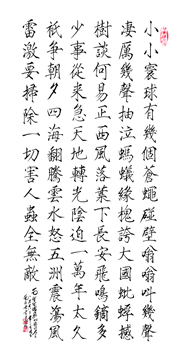 小小寰球有幾個蒼蠅碰壁翁翁叫幾聲
淒厲幾聲抽泣螞蟻緣槐誇大國蚍蜉撼
樹談何易正西風落葉下長安飛鳴鏑多
少事從來急天地轉光陰迫一萬年太久
祇爭朝夕四海翻騰雲水怒五洲震蕩風
雷激要掃除一切害人蟲全無敵